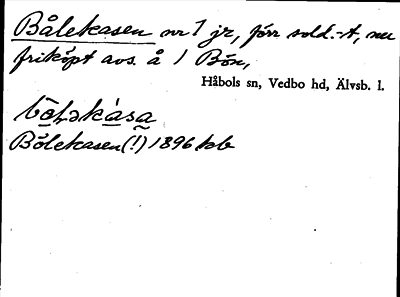 Bålekasen nr 1 jr, förr sold.-t, nu
friköpt avs. å 1 Bön,
Håbols sn, Vedbo hd, Älvsb. l.
Bölekasen (!) 1896 kb